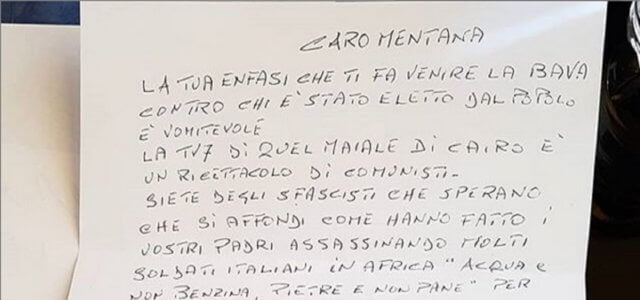 CARO MENTANA
LA TUA ENFASI CHE TI FA VENIRE LA BAVA
CONTRO CHI E' STATO ELETTO DAL POPOLO
E' VOMITEVOLE
LA TV7 DI QUEL MAIALE DI CAIRO E'
UN RICETTACOLO DI COMUNISTI-
SIETE DEGLI SFASCISTI CHE SPERANO
CHE SI AFFONDI COME HANNO FATTO I
VOSTRI PADRI ASSASSINANDO MOLTI
SOLDATI ITALIANI IN AFRICA "ACQUA E
NON BENZINA, PIETRE E NON PANE" PER